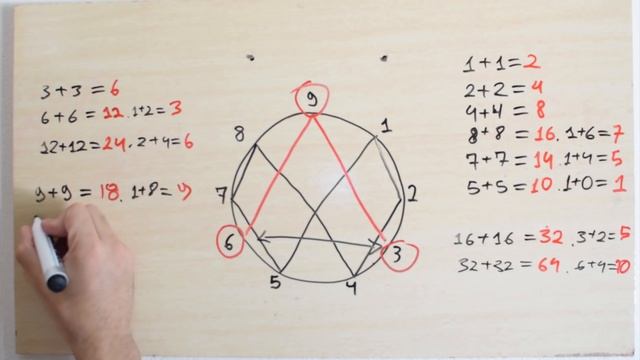 3+3=6
6+6=12.1+2=3
12+12=24.2+4=6
9+9=18.1+8=9
9
8
1
7
2
6
3
5
4
1+1=2
2+2=4
4+4=8
8+8=16.1+6=7
7+7=14.1+4=5
5+5=10.1+0=1
16+16=32.3+2=5
32+32=64.6+4=10